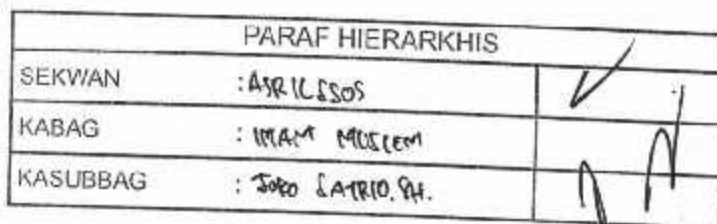 PARAF HIERARKHIS
SEKWAN : ASRIL SSOS
KABAG : IMAM MUSLEM
KASUBBAG : JOKO SATRIO.SH.